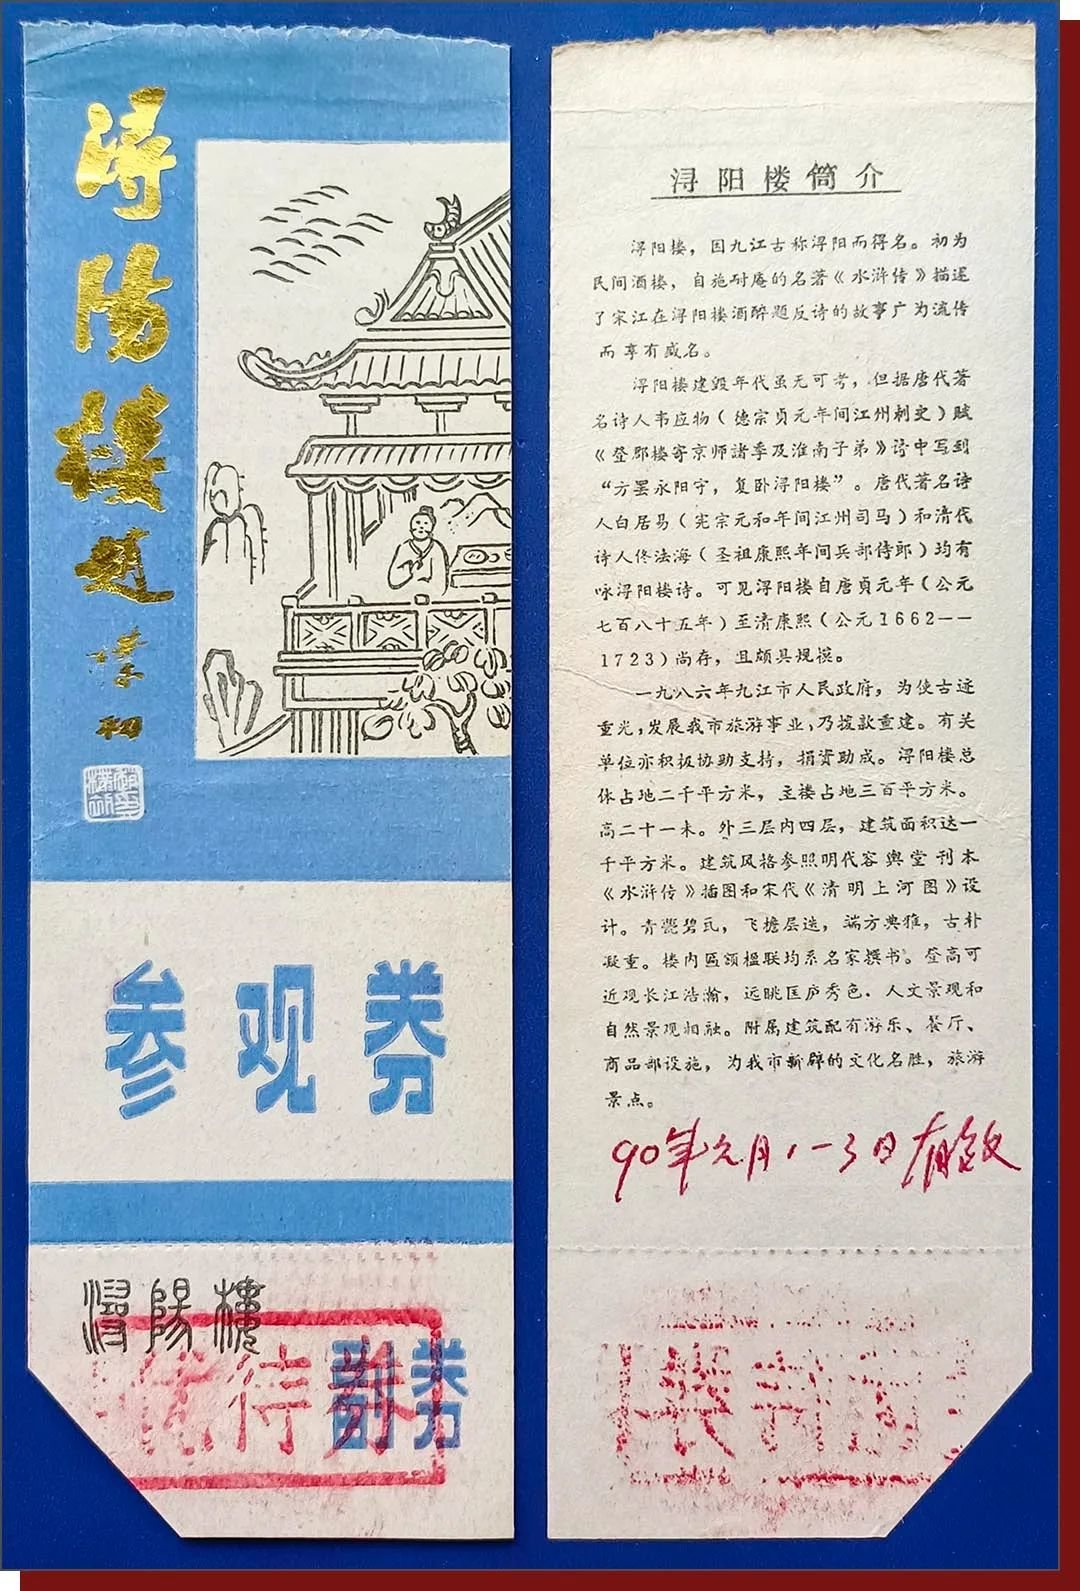 浔阳楼
题
朴初
参观券
浔阳樓
优待券
副券
浔阳楼简介
浔阳楼，因九江古称浔阳而得名。初为
民间酒楼，自施耐庵的名著《水浒传》描述
了宋江在浔阳楼酒醉题反诗的故事广为流传
而享有盛名。
浔阳楼建毁年代虽无可考，但据唐代著
名诗人韦应物（德宗贞元年间江州刺史）赋
《登郡楼寄京师諸季及淮南子弟》诗中写到
“方罢永阳守，复卧浔阳楼”。唐代著名诗
人白居易（宪宗元和年间江州司马）和清代
诗人佟法海（圣祖康熙年间兵部侍郎）均有
咏浔阳楼诗。可见浔阳楼自唐貞元年（公元
七百八十五年）至清康熙（公元1662——
1723）尚存，且颇具规模。
一九八六年九江市人民政府，为使古迹
重光，发展我市旅游事业，乃拨款重建。有关
单位亦积极协助支持，捐资助成。浔阳楼总
体占地二千平方米，主楼占地三百平方米。
高二十一米。外三层内四层，建筑面积达一
千平方米。建筑风格参照明代容與堂刊本
《水浒传》插图和宋代《清明上河图》设
计。青甍碧瓦，飞檐层迭，端方典雅，古朴
凝重。楼内匾额楹联均系名家撰书。登高可
近观长江浩瀚，远眺匡庐秀色．人文景观和
自然景观相融。附属建筑配有游乐、餐厅、
商品部设施，为我市新辟的文化名胜，旅游
景点。
90年元月1-3日有效